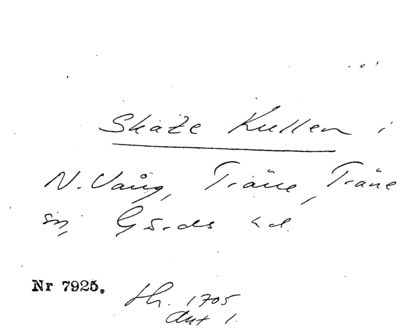 Skate Kullen i
N. Vång, Träne, Träne
sn, Gärds hd.
Nr 7925. th. 1705
Akt 1.